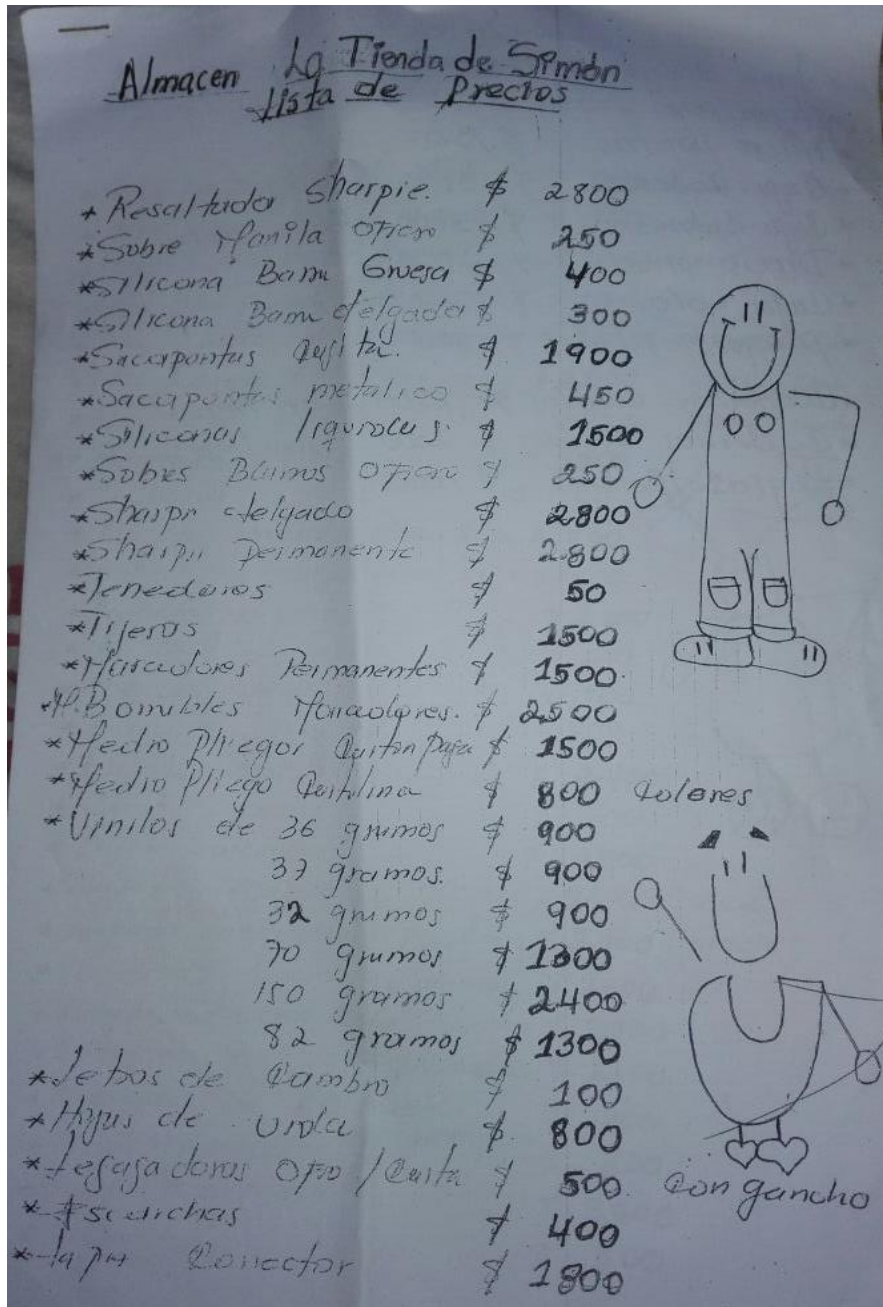 Almacen La Tienda de Simón
Lista de Precios
* Resaltador Sharpie. $ 2800
* Sobre Manila Oficio $ 250
* Silicona Barra Gruesa $ 400
* Silicona Barra delgada $ 300
* Sacapuntas $ 1900
* Sacapuntas metalico $ 450
* Siliconas liquidas. $ 1500
* Sobres Blancos Oficio $ 250
* Sharpi delgado $ 2800
* Sharpi Permanente $ 2.800
* Tenedores $ 50
* Tijeras $ 1500
* Marcadores Permanentes $ 1500.
Borrables Marcadores. $ 2500
* Medio Pliegor Carton Paja $ 1500
* Medio Pliego Cartulina $ 800 Colores
* Vinilos de 36 gramos $ 900
37 gramos. $ 900
32 gramos $ 900
70 gramos $ 1300
150 gramos $ 2400
82 gramos $ 1300
* de $ 100
* Hojas de $ 800
* Legajadoras Ofio / Carta $ 500. Con gancho
* Escarchas $ 400
* Corrector $ 1800